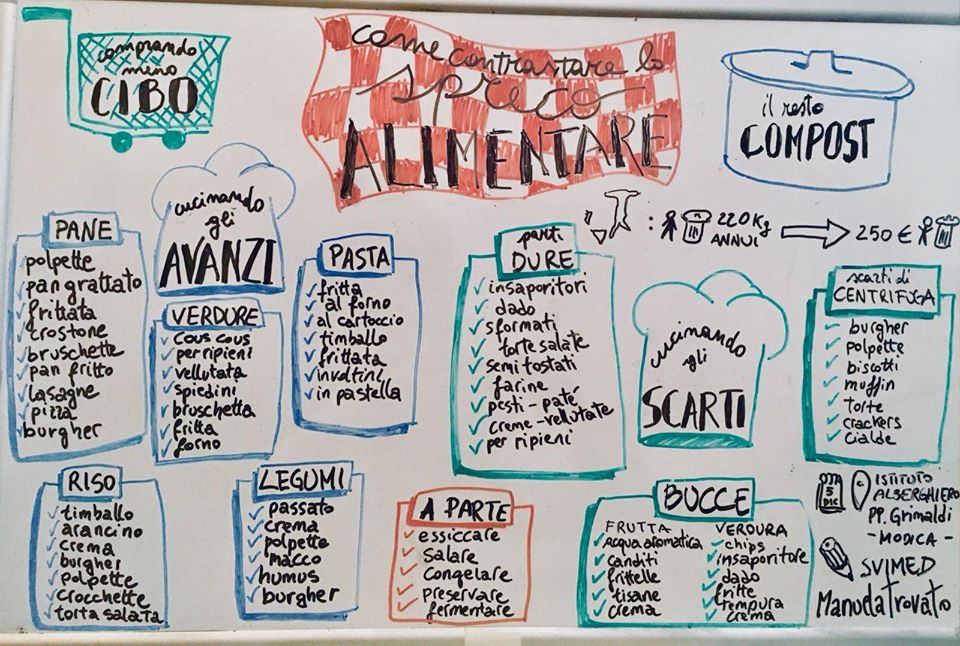 comprando
meno
CIBO
come contrastare lo
spreco
ALIMENTARE
il resto
COMPOST
cucinando
gli
AVANZI
: 220 Kg
ANNUI
250 €
PANE
polpette
pan grattato
frittata
crostone
bruschette
pan fritto
lasagne
pizza
burgher
VERDURE
cous cous
per ripieni
vellutata
spiedini
bruschetta
fritta
forno
PASTA
fritta
al forno
al cartoccio
timballo
frittata
involtini
in pastella
parti
DURE
insaporitori
dado
sformati
torte salate
semi tostati
farine
pesti - paté
creme - vellutate
per ripieni
cucinando
gli
SCARTI
scarti di
CENTRIFUGA
burgher
polpette
biscotti
muffin
torte
crackers
cialde
RISO
timballo
arancino
crema
burgher
polpette
crocchette
torta salata
LEGUMI
passato
crema
polpette
macco
humus
burgher
A PARTE
essiccare
salare
congelare
preservare
fermentare
BUCCE
FRUTTA
acqua aromatica
canditi
frittelle
tisane
crema
VERDURA
chips
insaporitore
dado
fritte
tempura
crema
5
DIC
ISTITUTO
ALBERGHIERO
PP. Grimaldi
- MODICA -
SVIMED
Manuela Trovato